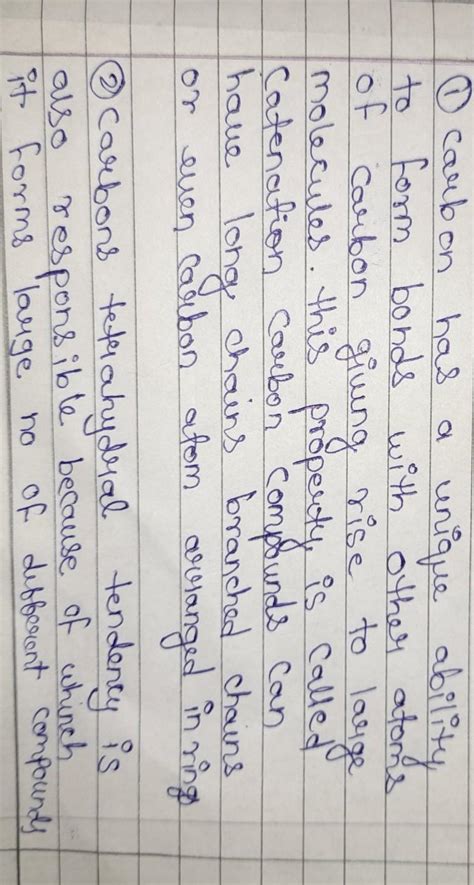 ① Carbon has a unique ability
to form bonds with other atoms
of carbon giving rise to large
molecules. this property is called
Catenation carbon compounds can
have long chains branched chains
or even carbon atom arranged in ring
② Carbons tetrahydral tendency is
also responsible because of whinch
it forms large no of different compounds